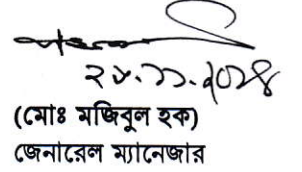 ২৮.১১.২০২৪
(মোঃ মজিবুল হক)
জেনারেল ম্যানেজার